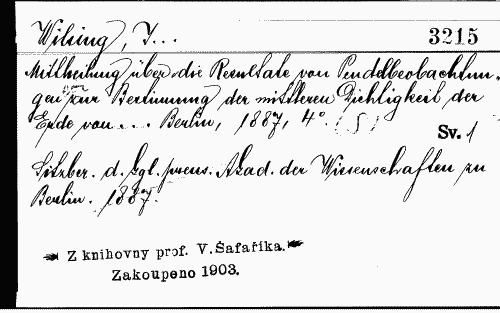 Wilsing, J...
3215
Mittheilung über die Resultate von Pendelbeobachtun-
gen zur Bestimmung der mittleren Dichtigkeit der
Erde von... Berlin, 1887, 4°. (S)
Sv. 1
Sitzber. d. kgl. preuss. Akad. der Wissenschaften zu
Berlin. 1887.
Z knihovny prof. V. Šafaříka.
Zakoupeno 1903.